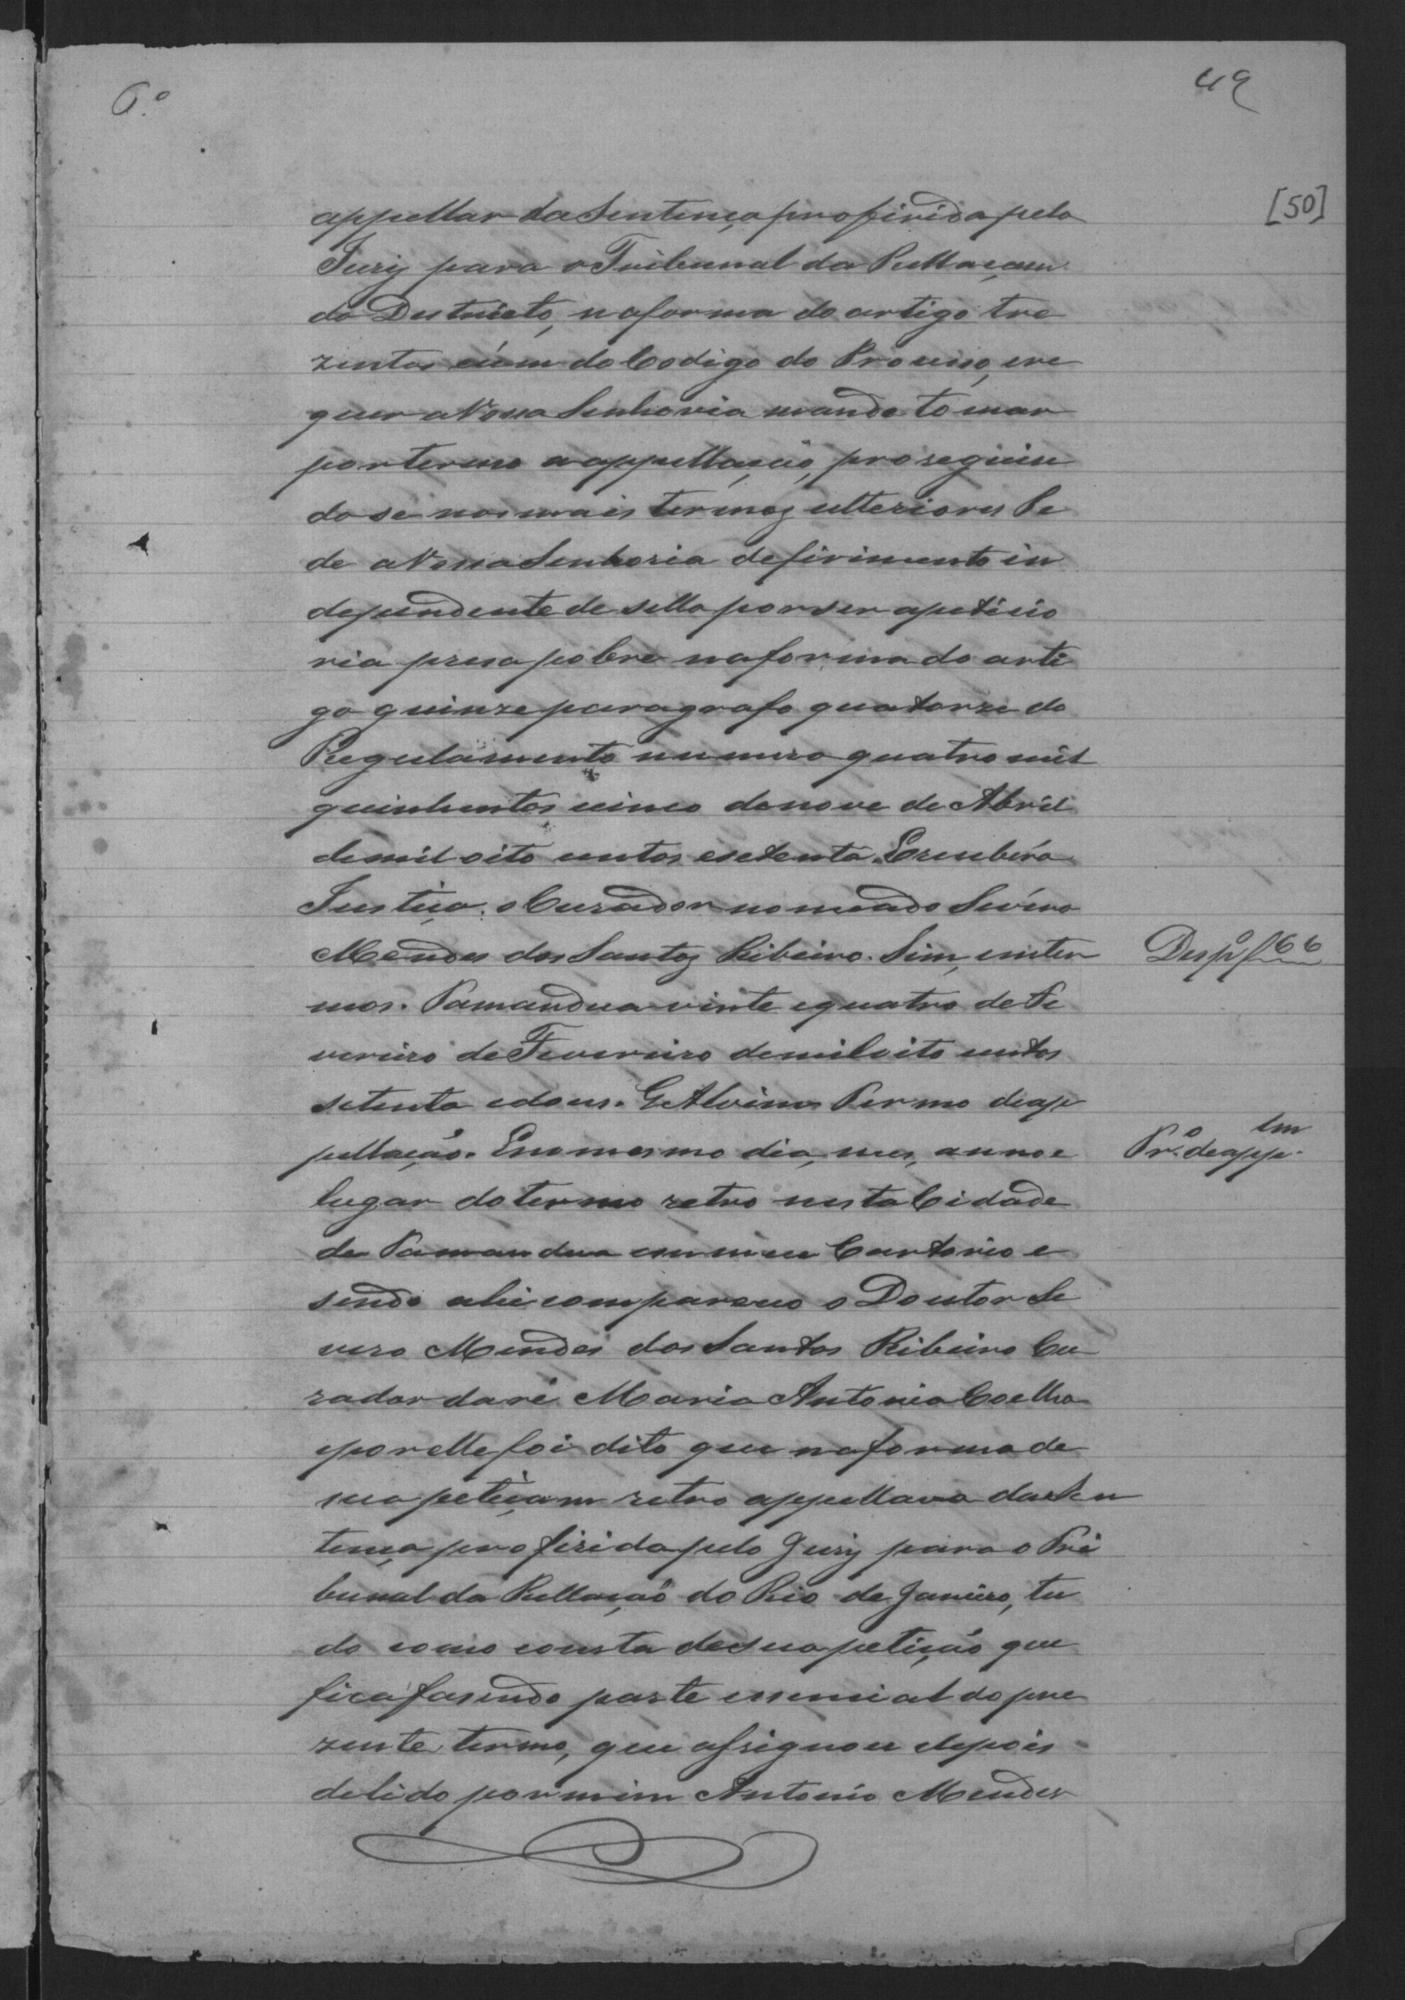 6.º
49
[50]
appellar da Sentença proferida pelo
Jury para o Tribunal da Rellaçam
do Destricto, na forma do artigo tre
zentos eúm do Codigo do Processo, ere
quer a Vossa Senhoria mande tomar
por termo a appellação, proseguin
do se nos mais termos ulteriores Pe
de a Vossa Senhoria defirimento in
dependente de sello por ser a peticio
ria presa pobre na forma do arti
go quinze paragrafo quatorze do
Regulamento numero quatro mil
quinhentos cinco de nove de Abril
de mil oito centos e setenta. E receberá
Justiça. o Curador nomeado Sevéro
Mendes dos Santos Ribeiro. Sim, em ter
Desp.º f 66
mos. Tamandua vinte e quatro de Fe
vereiro de Fevereiro de mil oito centos
setenta e dous. G Alvim. Termo de ap
pellação. E no mesmo dia, mes, anno e
Tr.º de app.
lm
lugar do termo retro nesta Cidade
de Tamandua em meu Cartorio e
sendo ahi compareceo o Doutor Se
vero Mendes dos Santos Ribeiro Cu
rador da ré Maria Antonia Coelha
e por elle foi dito que na forma de
sua petiçam retro appellava da Sen
tença proferida pelo Jury para o Tri
bunal da Rellação do Rio de Janeiro, tu
do como consta de sua petição que
fica fasendo parte essencial do pre
zente termo, que assignou depois
de lido por mim Antonio Mendes